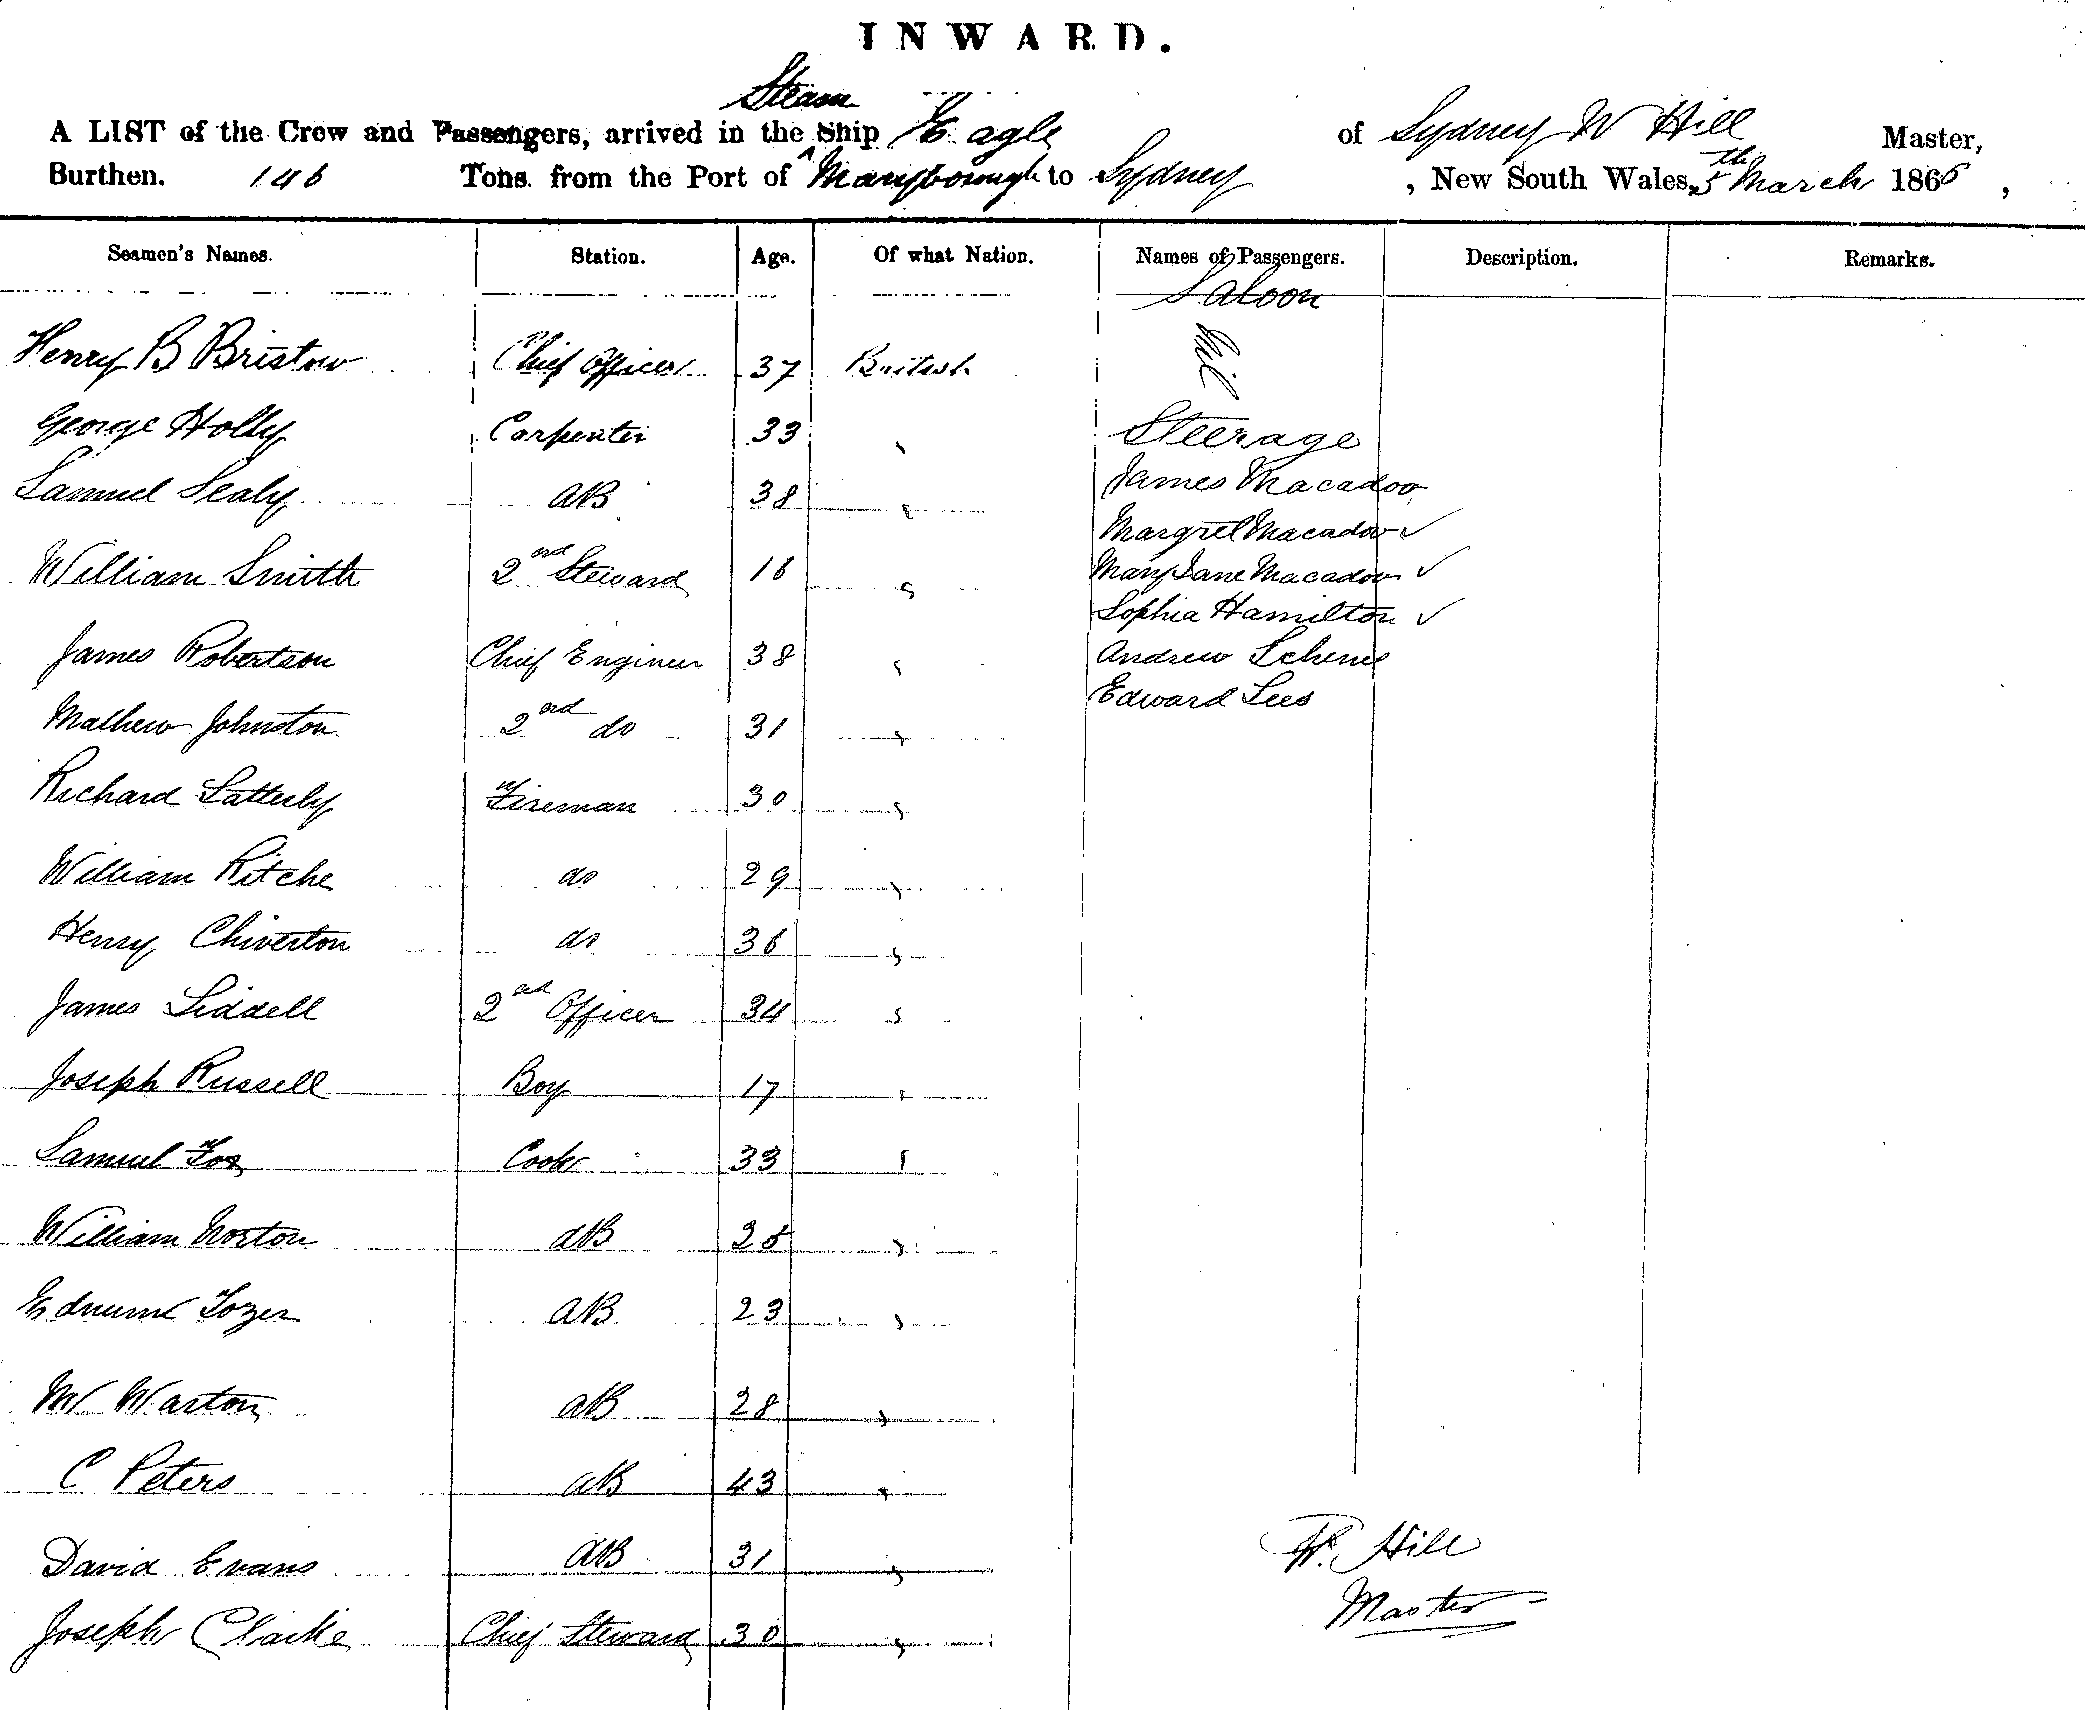 INWARD.
Steam
A LIST of the Crew and Passengers, arrived in the Ship Eagle of Sydney W Hill Master,
Burthen. 146 Tons from the Port of ^ Maryborough to Sydney , New South Wales, 5th March 1866 ,
Seamen's Names. Station. Age. Of what Nation. Names of Passengers. Description. Remarks.
Saloon
Henry B Bristow Chief Officer 37 British Nil
George Holly Carpenter 33 " Steerage
Samuel Sealy AB 38 " James Macadoo
Margret Macadoo ✓
William Smith 2nd Steward 16 " Mary Jane Macadoo ✓
Sophia Hamilton ✓
James Robertson Chief Engineer 38 " Andrew
Edward Lees
Mathew Johnston 2nd do 31 "
Richard Satterly Fireman 30 "
William Ritche do 29 "
Henry Chiverton do 36 "
James Liddell 2nd Officer 34 "
Joseph Russell Boy 17 "
Samuel Fox Cook 33 "
William Norton AB 25 "
Edmund Tozer AB 23 "
W Warton AB 28 "
C Peters AB 43 "
David Evans AB 31 "
Joseph Clarke Chief Steward 30 "
W. Hill
Master